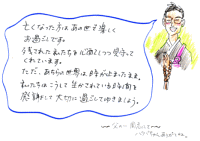 亡くなった方はあの世で楽しく
お過ごしです。
残された私たちを優しく見守って
くれています。
ただ、あちらの世界は時が止まったまま。
私たちはこうして生かされている時間を
感謝して大切に過ごしてゆきましょう。